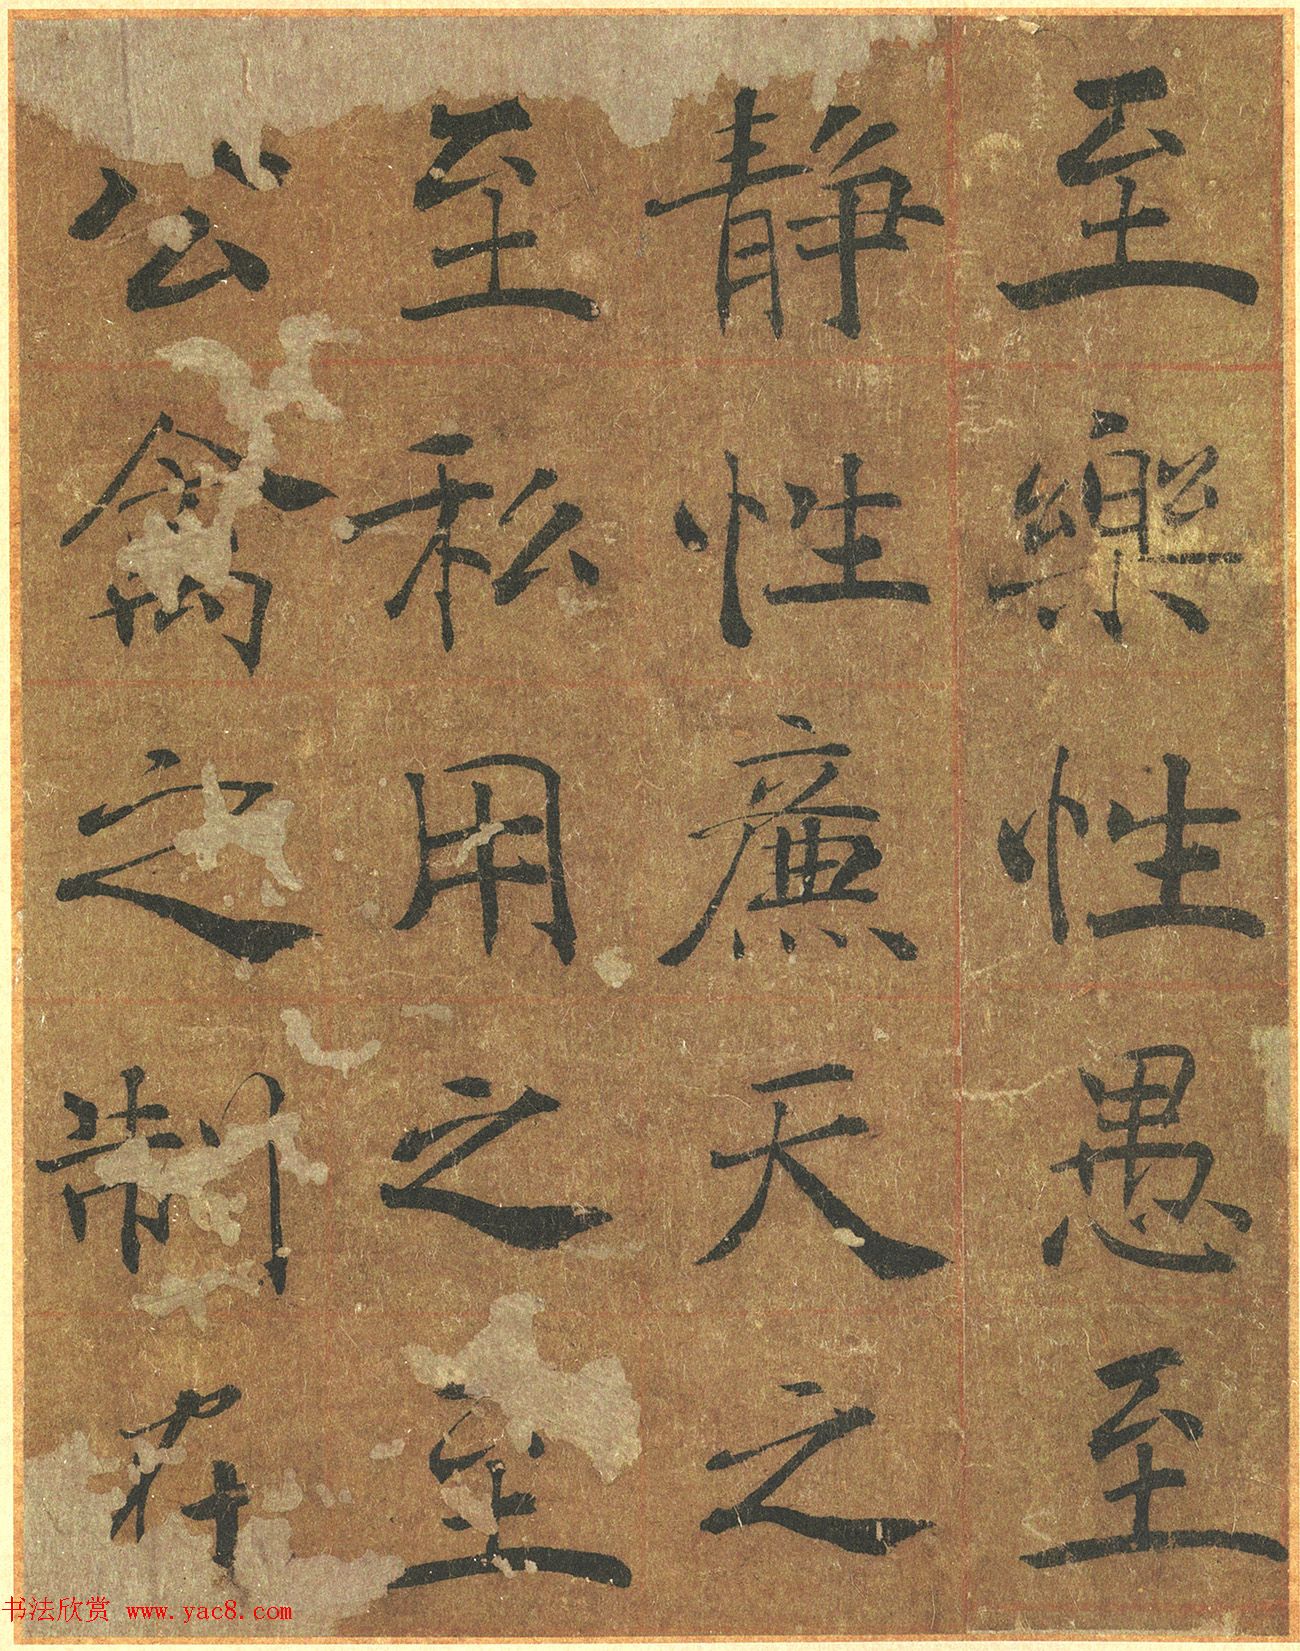 至樂性愚至
靜性廉天之
至私用之至
公禽之制在
书法欣赏 www.yac8.com